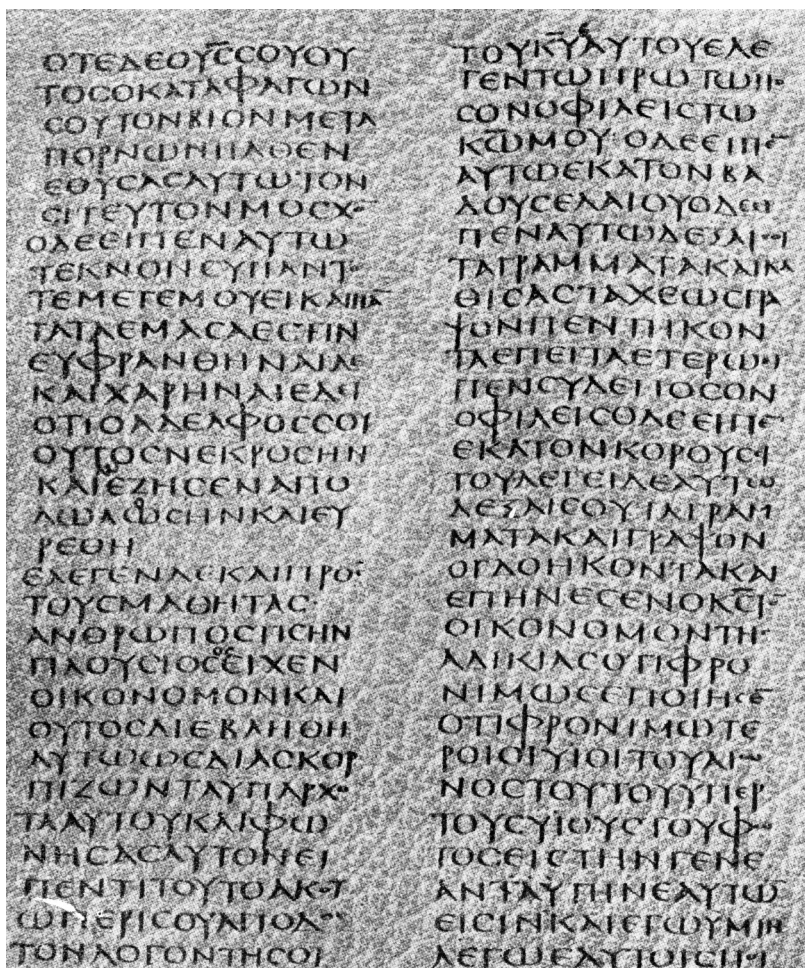 ΟΤΕΔΕΟΥ̅Ϲ̅ϹΟΥΟΥ
ΤΟϹΟΚΑΤΑΦΑΓΩΝ
ϹΟΥΤΟΝΒΙΟΝΜΕΤΑ
ΠΟΡΝΩΝΗΛΘΕΝ
ΕΘΥϹΑϹΑΥΤΩΤΟΝ
ϹΙΤΕΥΤΟΝΜΟϹΧΟ̅
ΟΔΕΕΙΠΕΝΑΥΤΩ
ΤΕΚΝΟΝϹΥΠΑΝΤΟ
ΤΕΜΕΤΕΜΟΥΕΙΚΑΙΠΑ̅
ΤΑΤΑΕΜΑϹΑΕϹΤΙΝ
ΕΥΦΡΑΝΘΗΝΑΙΔΕ
ΚΑΙΧΑΡΗΝΑΙΕΔΕΙ
ΟΤΙΟΑΔΕΛΦΟϹϹΟΥ
ΟΥΤΟϹΝΕΚΡΟϹΗΝ
ΚΑΙΕΖΗϹΕΝΑΠΟ
ΛΩΛΩϹΗΝΚΑΙΕΥ
ΡΕΘΗ
ΕΛΕΓΕΝΔΕΚΑΙΠΡΟϹ
ΤΟΥϹΜΑΘΗΤΑϹ·
ΑΝΘΡΩΠΟϹΤΙϹΗΝ
ΠΛΟΥϹΙΟϹΟϹΕΙΧΕΝ
ΟΙΚΟΝΟΜΟΝΚΑΙ
ΟΥΤΟϹΔΙΕΒΛΗΘΗ
ΑΥΤΩΩϹΔΙΑϹΚΟΡ
ΠΙΖΩΝΤΑΥΠΑΡΧΟ̅
ΤΑΑΥΤΟΥΚΑΙΦΩ
ΝΗϹΑϹΑΥΤΟΝΕΙ
ΠΕΝΤΙΤΟΥΤΟΑΚΟΥ
ΩΠΕΡΙϹΟΥΑΠΟΔΟϹ
ΤΟΝΛΟΓΟΝΤΗϹΟΙ
ΤΟΥΚ̅Υ̅ΕΑΥΤΟΥΕΛΕ
ΓΕΝΤΩΠΡΩΤΩΠΟ
ϹΟΝΟΦΙΛΕΙϹΤΩ
Κ̅Ω̅ΜΟΥ·ΟΔΕΕΙΠΕ̅
ΑΥΤΩΕΚΑΤΟΝΒΑ
ΔΟΥϹΕΛΑΙΟΥΟΔΕΕΙ
ΠΕΝΑΥΤΩΔΕΞΑΙϹΟΥ
ΤΑΓΡΑΜΜΑΤΑΚΑΙΚΑ
ΘΙϹΑϹΤΑΧΕΩϹΓΡΑ
ΨΟΝΠΕΝΤΗΚΟΝ
ΤΑΕΠΕΙΤΑΕΤΕΡΩΕΙ
ΠΕΝϹΥΔΕΠΟϹΟΝ
ΟΦΙΛΕΙϹΟΔΕΕΙΠΕ̅
ΕΚΑΤΟΝΚΟΡΟΥϹϹΙ
ΤΟΥΛΕΓΕΙΔΕΑΥΤΩ
ΔΕΞΑΙϹΟΥΤΑΓΡΑΜ
ΜΑΤΑΚΑΙΓΡΑΨΟΝ
ΟΓΔΟΗΚΟΝΤΑΚΑΙ
ΕΠΗΝΕϹΕΝΟΚ̅Ϲ̅ΤΟ̅
ΟΙΚΟΝΟΜΟΝΤΗϹ
ΑΔΙΚΙΑϹΟΤΙΦΡΟ
ΝΙΜΩϹΕΠΟΙΗϹΕ̅
ΟΤΙΦΡΟΝΙΜΩΤΕ
ΡΟΙΟΙΥΙΟΙΤΟΥΑΙΩ
ΝΟϹΤΟΥΤΟΥΥΠΕΡ
ΤΟΥϹΥΙΟΥϹΤΟΥΦΩ
ΤΟϹΕΙϹΤΗΝΓΕΝΕ
ΑΝΤΑΥΤΗΝΕΑΥΤΩ̅
ΕΙϹΙΝΚΑΙΕΓΩΥΜΙΝ
ΛΕΓΩΕΑΥΤΟΙϹΠΟΙ